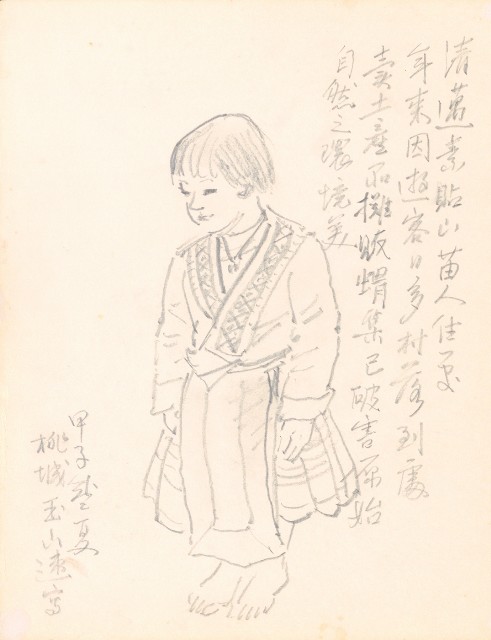 清邁素貼山苗人住處
年來因遊客日多村落到處
賣土產品攤販蝟集已破害原始
自然之環境美
甲子盛夏
桃城玉山速寫